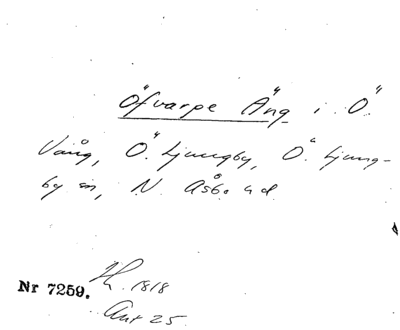 Öfvarpe Äng i Ö.
Vång, Ö. Ljungby, Ö. Ljung-
by sn, N. Åsbo hd
Nr 7259.
1818
Akt 25